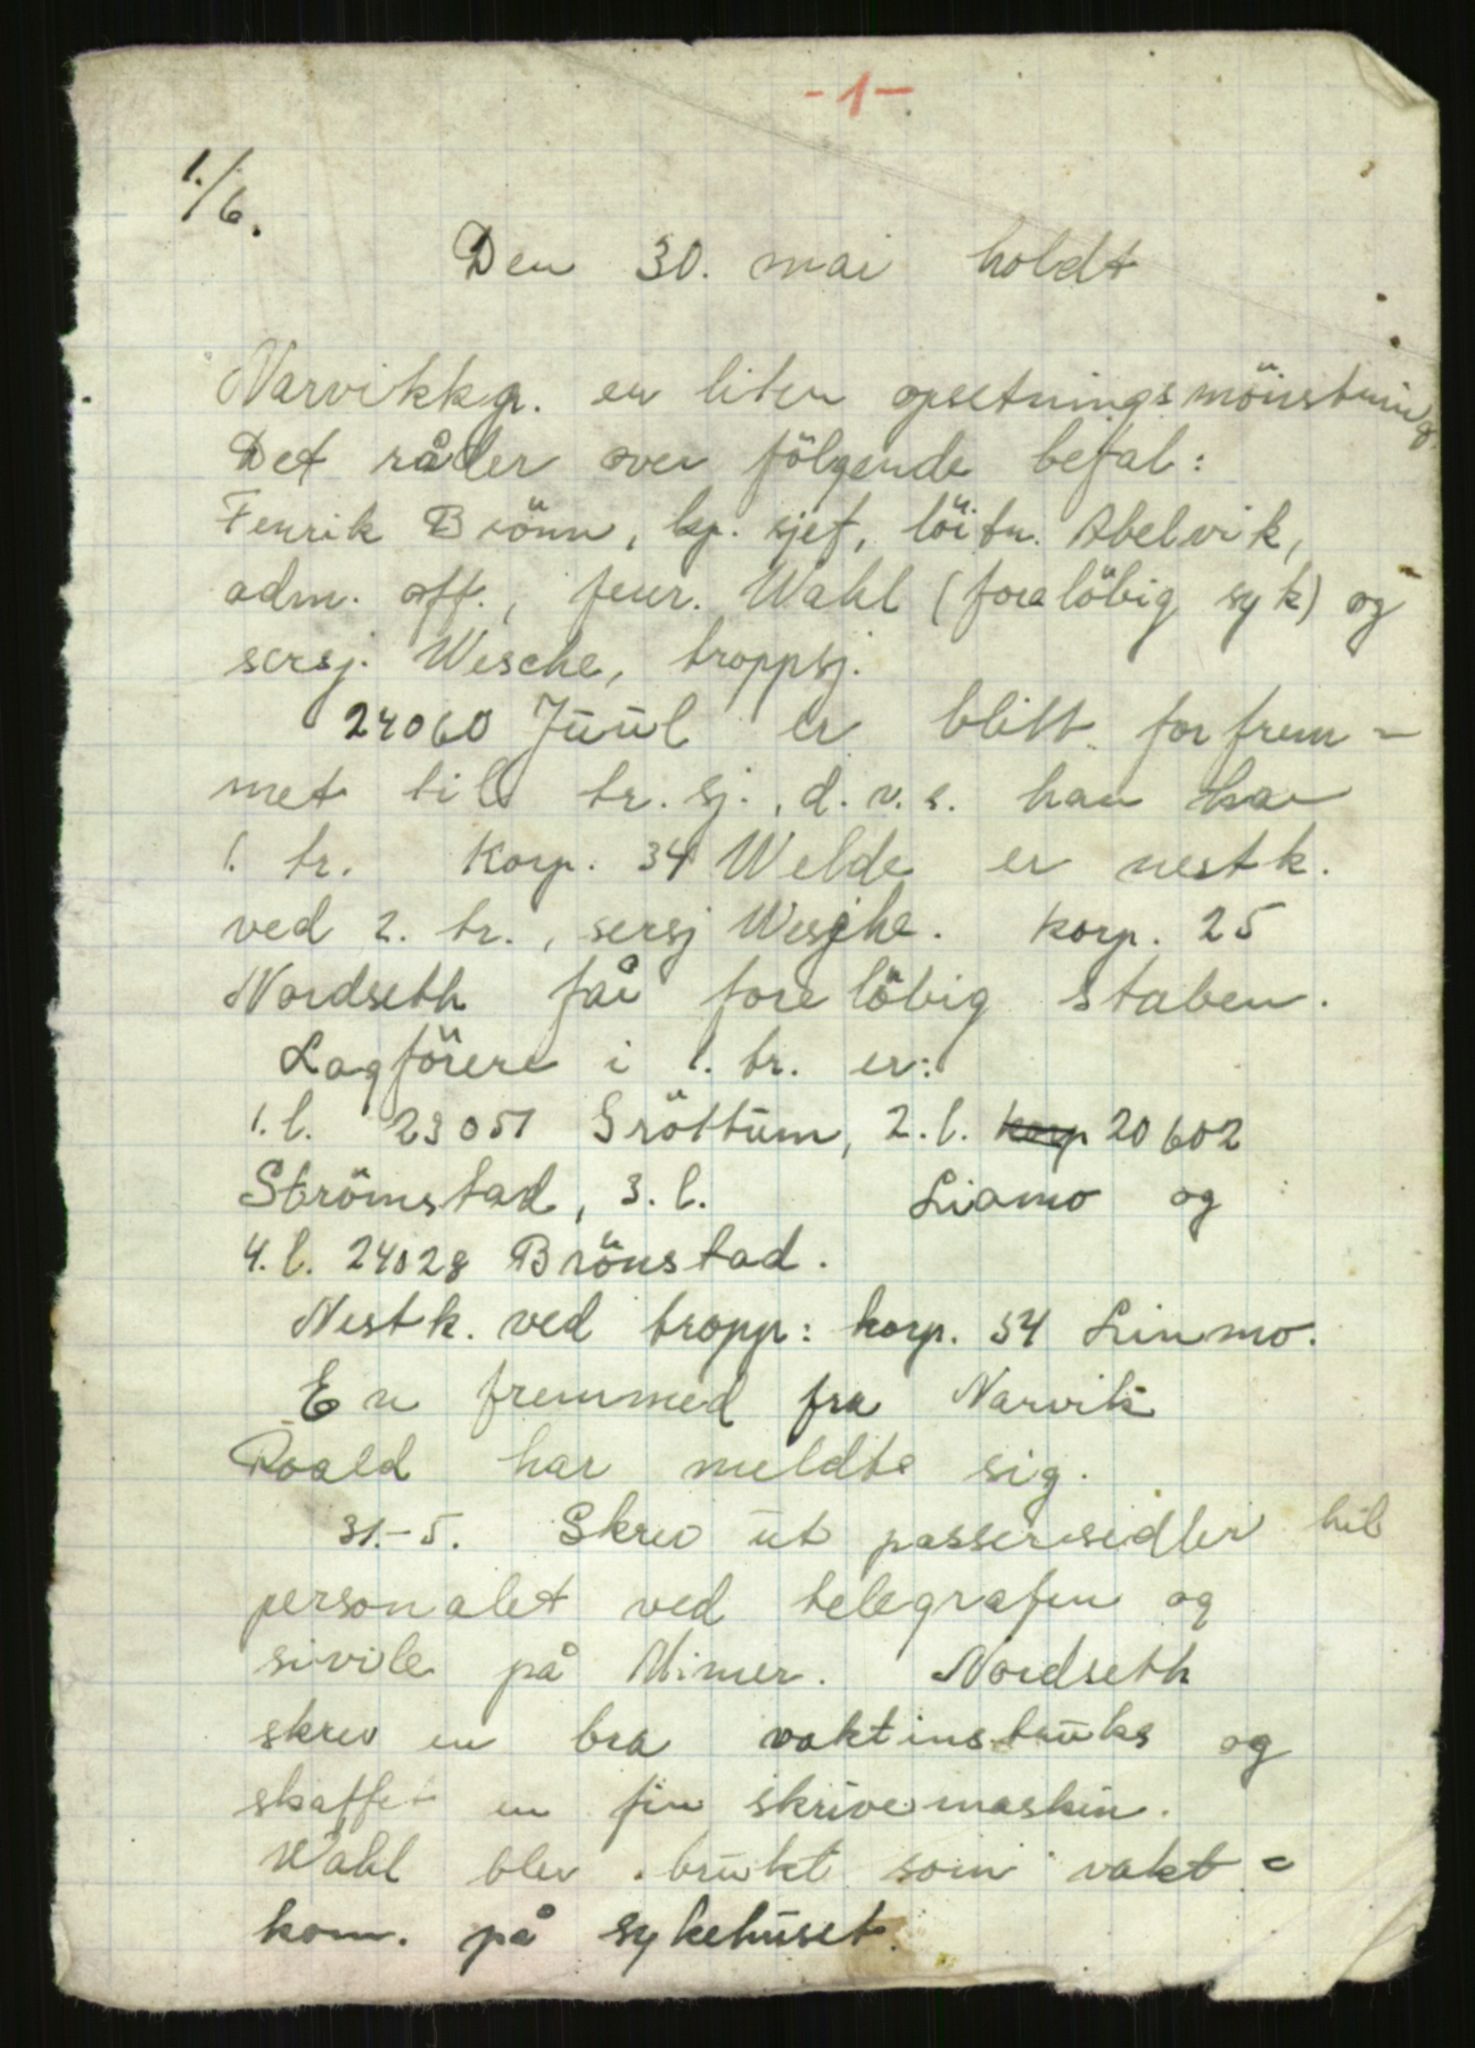 -1-
1./6.
Den 30. mai holdt
Narvikkp. en liten opsetningsmönstring.
Det råder over fölgende befal:
Fenrik Brönn, kp. sjef, löitn. Abelvik,
adm. off., fenr. Wahl (forelöbig syk) og
sersj. Wesche, troppsj.
24060 Juul er blitt forfrem-
met til tr. sj., d.v.s. han har
1. tr. Korp. 34 Welde er nestk.
ved 2. tr., sersj Wesche. Korp. 25
Nordseth får forelöbig staben.
Lagförere i 1. tr. er:
1. l. 23051 Gröttum, 2. l. korp 20602
Strömstad, 3. l. Liamo og
4. l. 24028 Brönstad.
Nestk. ved tropp: korp. 54 Linmo.
En fremmed fra Narvik
Roald har meldt sig.
31.-5. Skrev ut passersedler til
personalet ved telegrafen og
sivile på Mimer. Nordseth
skrev en bra vaktinstruks og
skaffet en fin skrivemaskin.
Wahl blev brukt som vakt-
kom. på sykehuset.